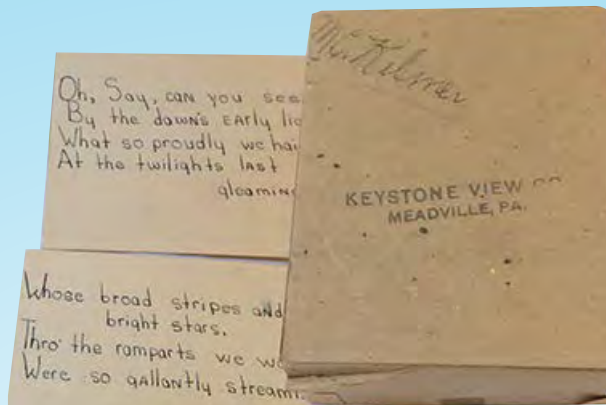 Oh, Say, can you see
By the dawn's early
What so proudly we
At the twilights last
gleaming
Whose broad stripes and
bright stars.
Thro' the ramparts we
Were so gallantly
KEYSTONE VIEW
MEADVILLE, PA.